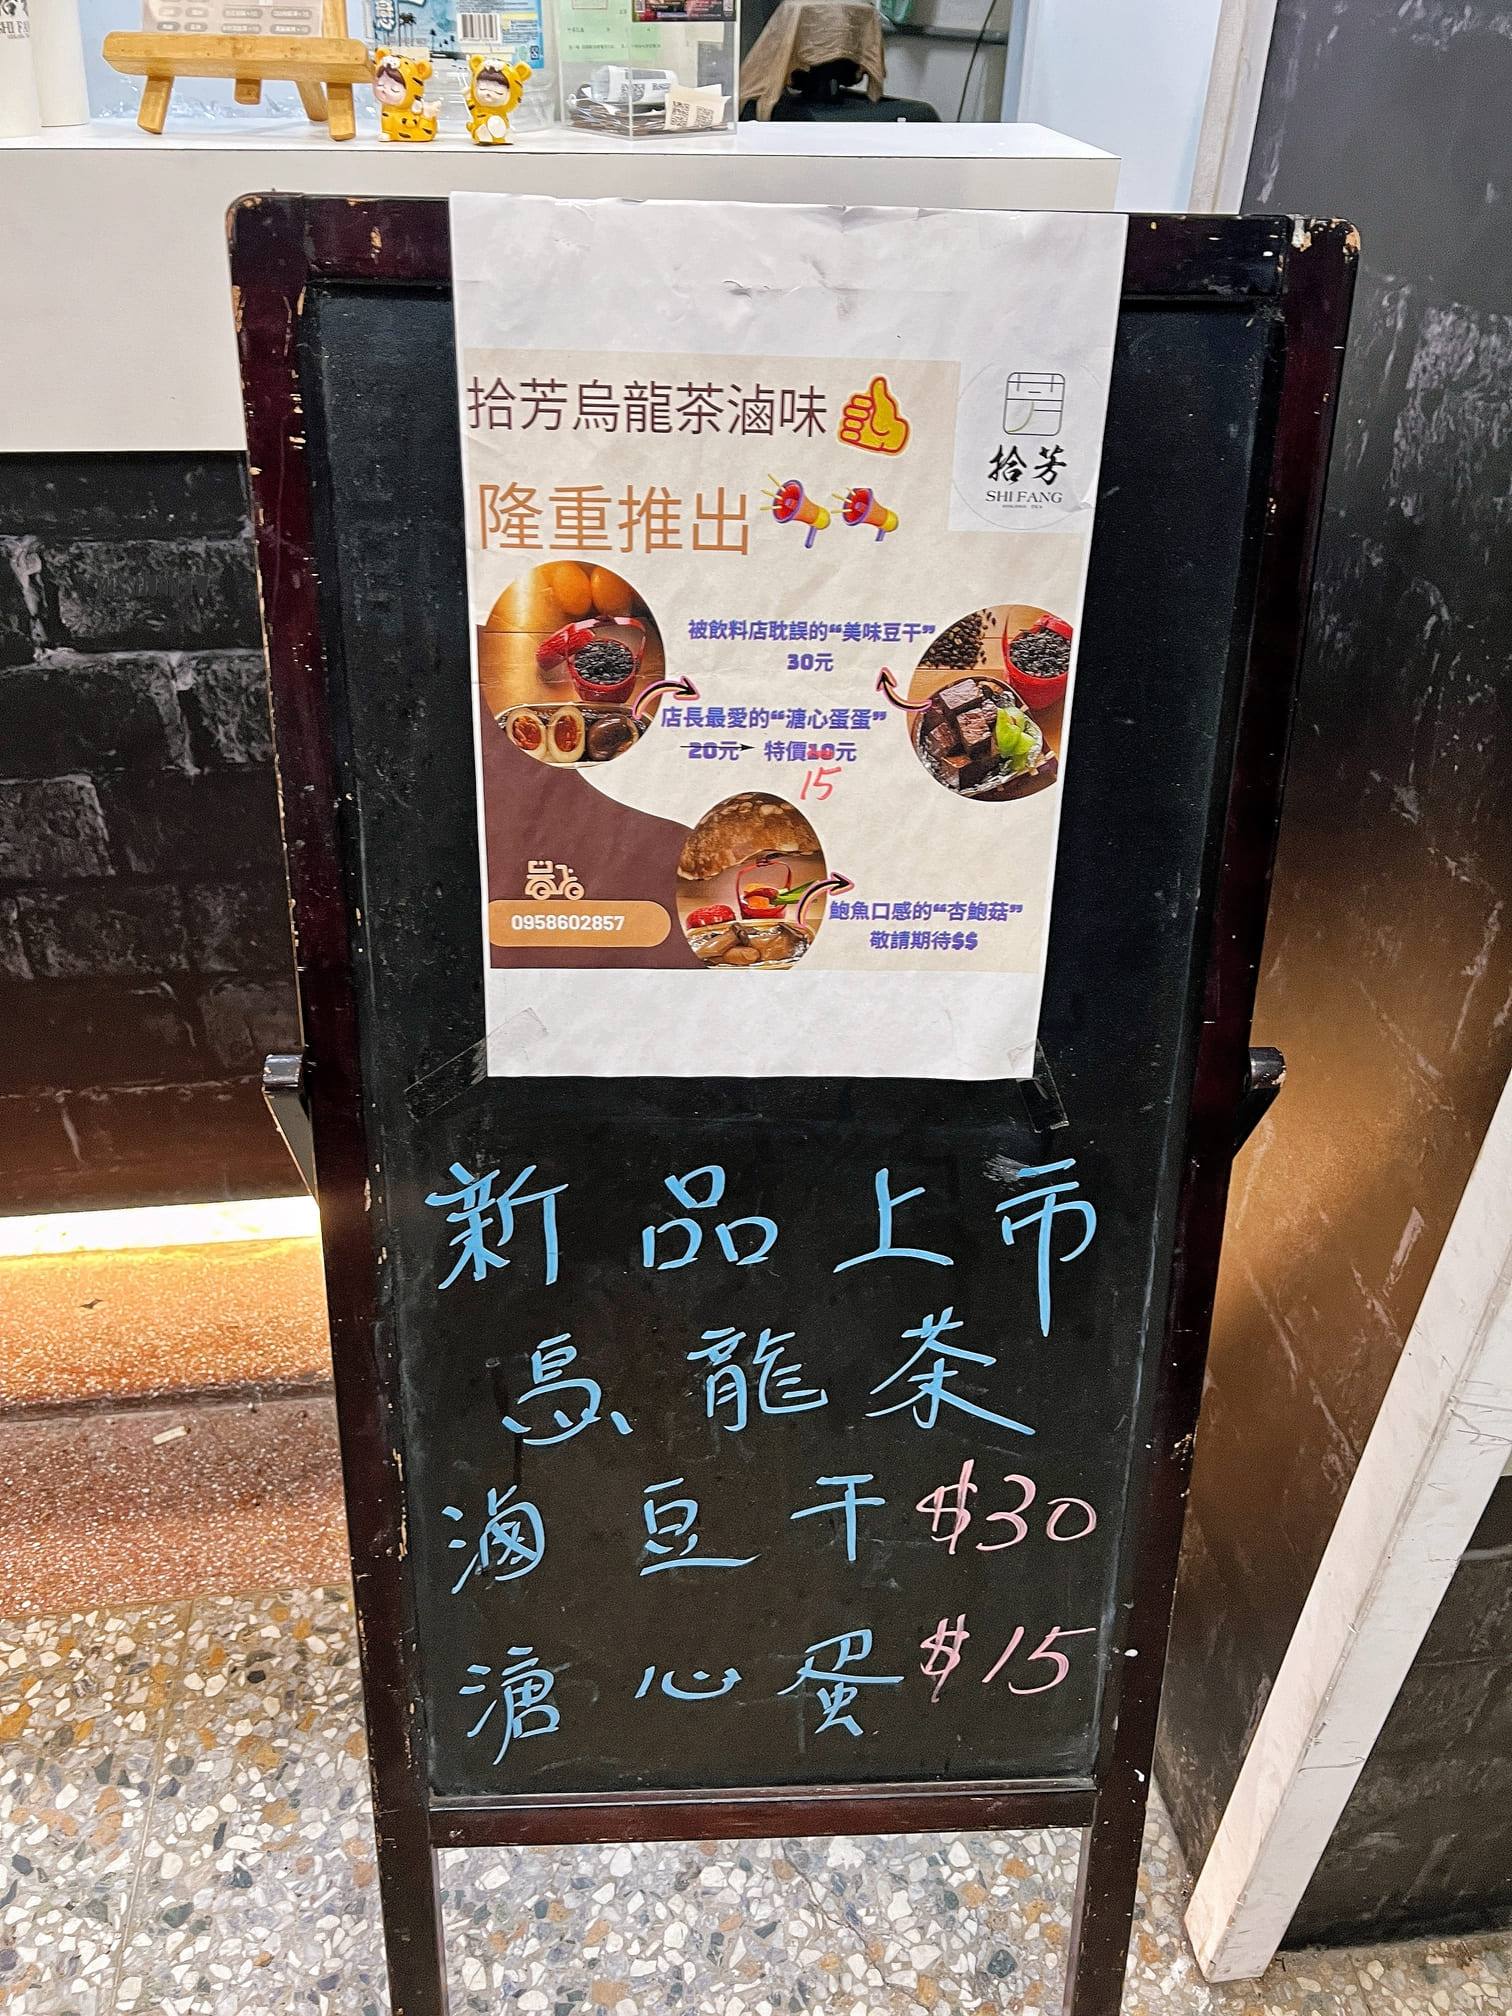 拾芳烏龍茶滷味
拾芳
SHI FANG
隆重推出
被飲料店耽誤的“美味豆干”
30元
店長最愛的“溏心蛋蛋”
20元 特價10元
15
0958602857
鮑魚口感的“杏鮑菇”
敬請期待$$
新品上市
烏龍茶
滷豆干$30
溏心蛋$15